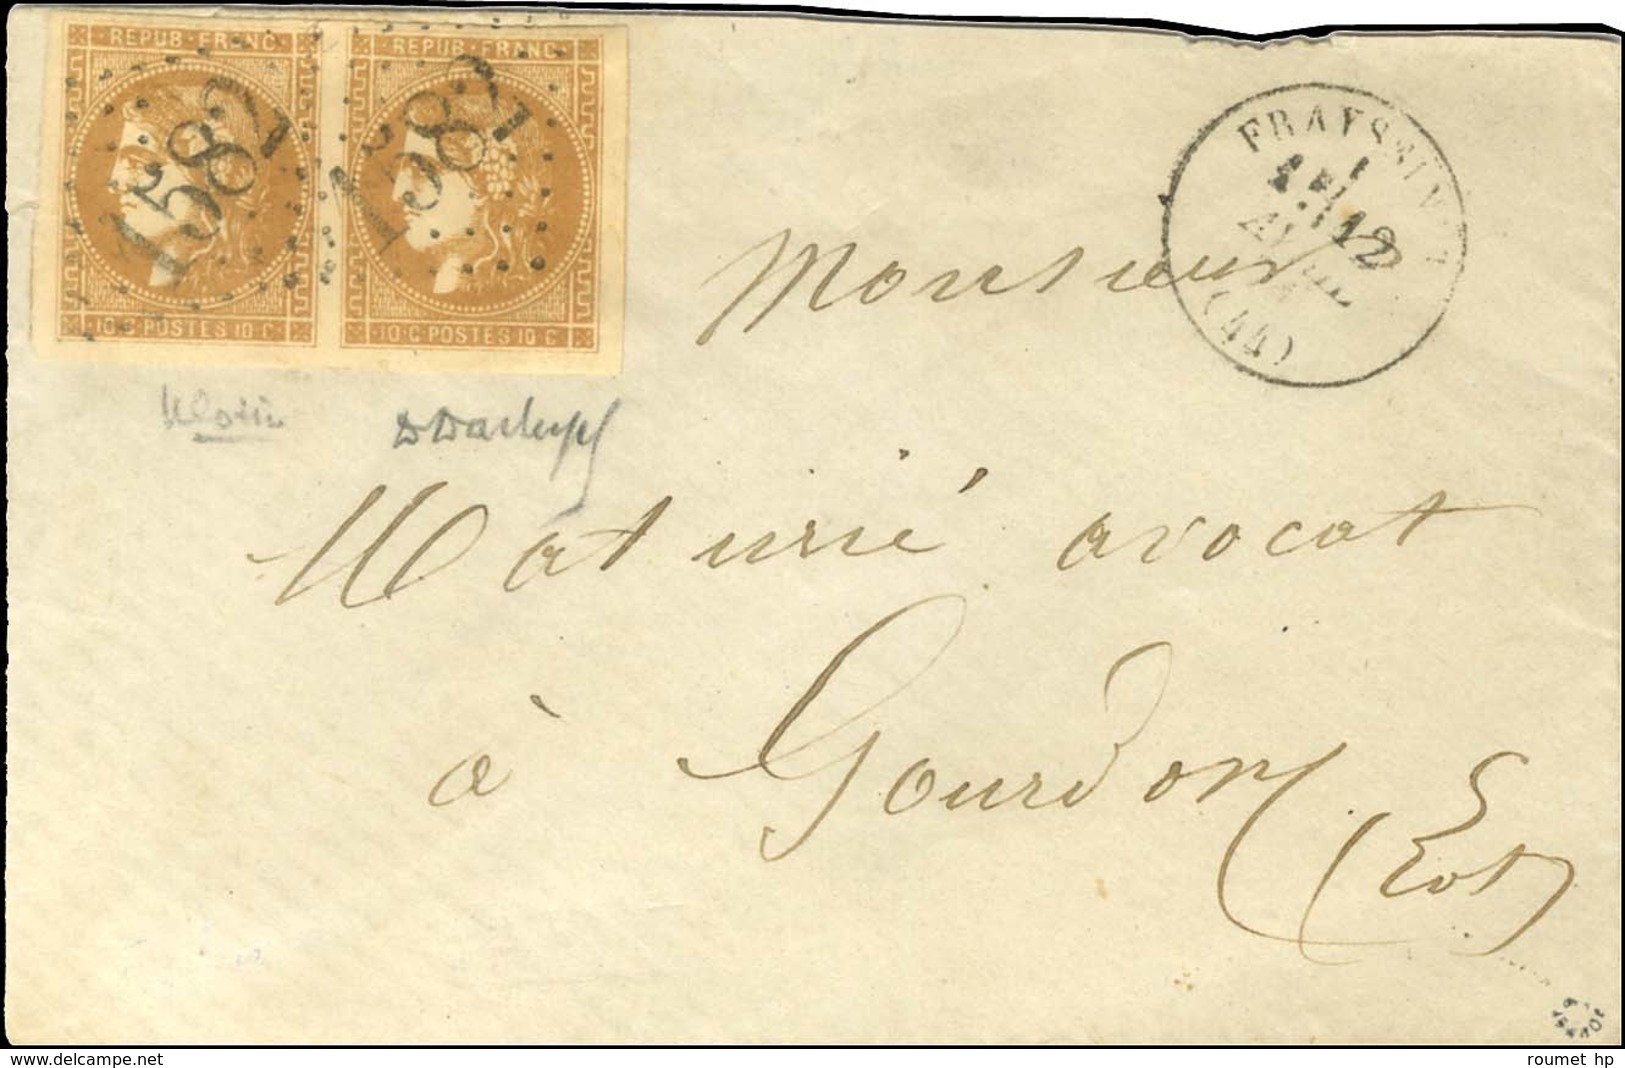 REPUB·FRANC·
10·C·POSTES 10·C·
1582
REPUB·FRANC·
10·C·POSTES 10·C·
1582
12
(44)
Monsieur
Maturié avocat
à Gourdon
(Lot)
www.delcampe.net
roumet hp